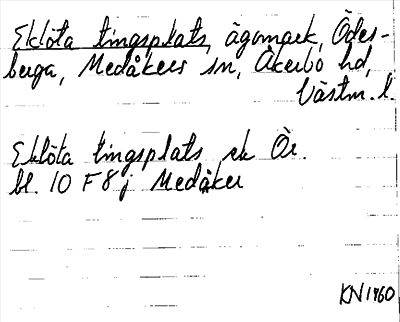 Eklöta tingsplats, ägomark, Ödes-
berga, Medåkers sn, Åkerbo hd,
Västm. l.
Eklöta tingsplats ek Ör.
bl. 10 F 8 j Medåker
KN 1960